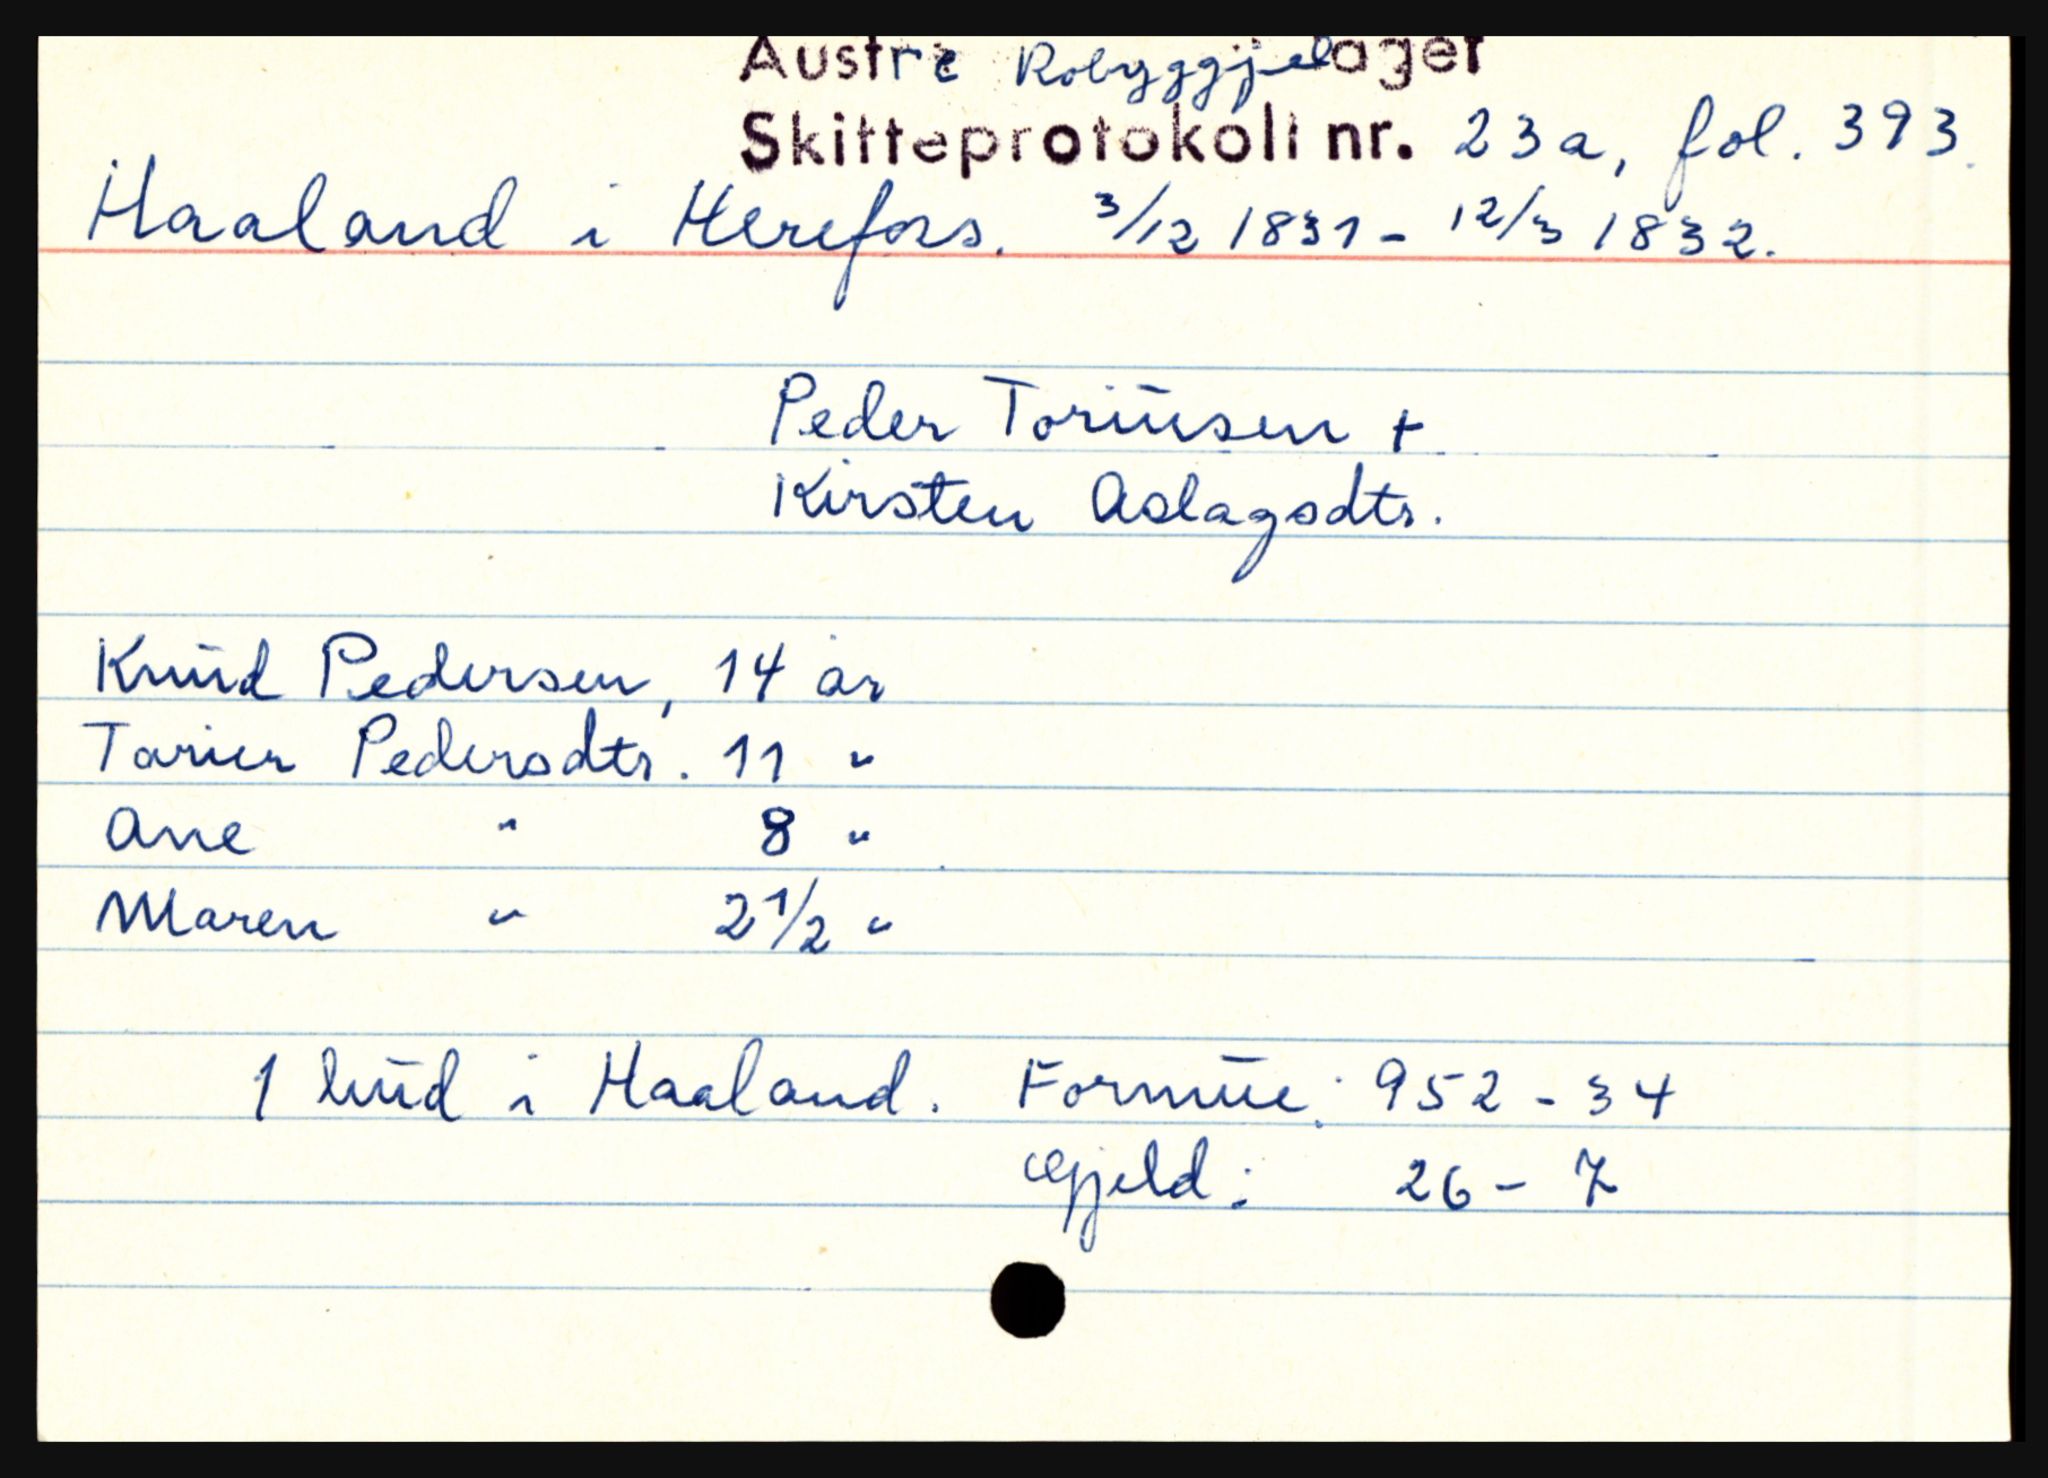 Austre Robyggjelager
Skifteprotokoll nr. 23a, fol. 393.
Haaland i Herefoss. 3/12 1831 - 12/3 1832.
Peder Toriusen +
Kirsten Aslagsdtr.
Knud Pedersen, 14 år
Pedersdtr. 11 "
Ane " 8 "
Maren " 2 1/2 "
1 hud i Haaland. Formue: 952 - 34
Gjeld: 26 - 7